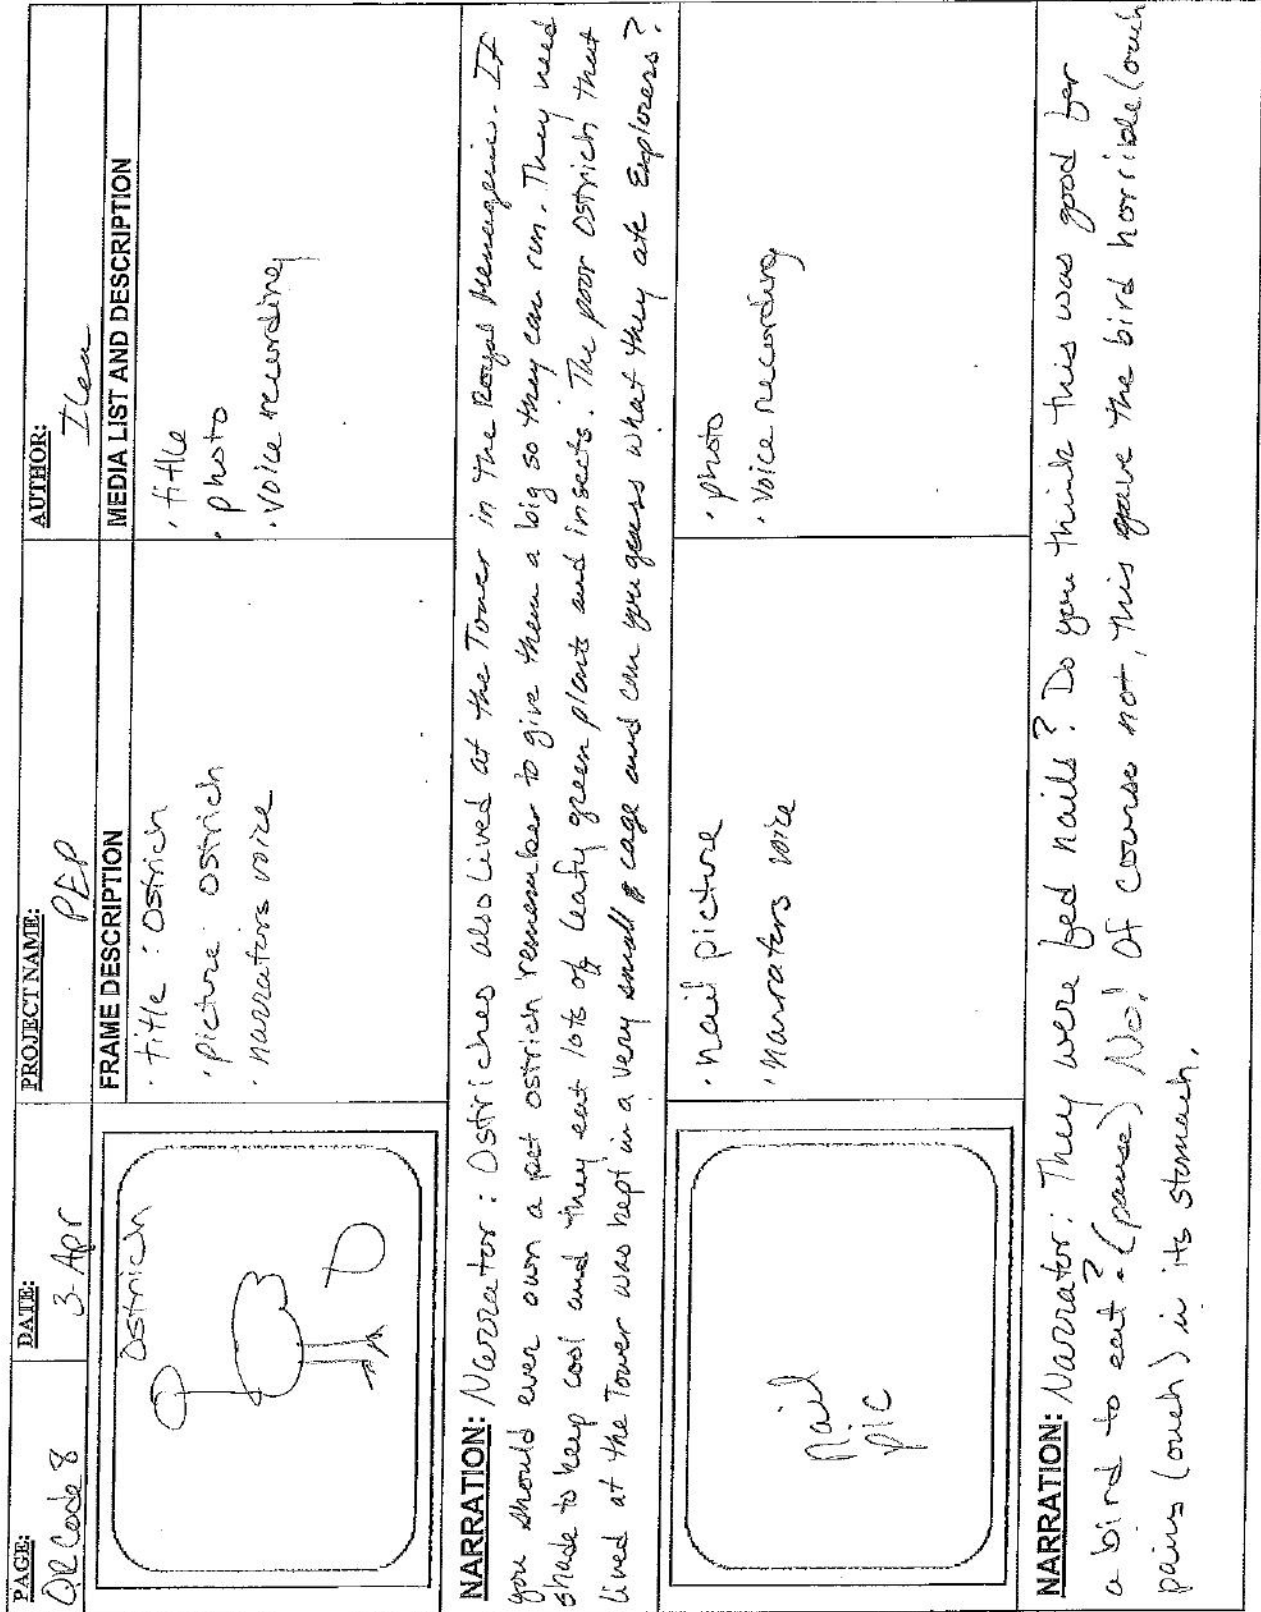 PAGE: DATE: PROJECT NAME: AUTHOR:
QR Code 8 3-Apr PEP Ilea
FRAME DESCRIPTION MEDIA LIST AND DESCRIPTION
Ostrich
· title : Ostrich
· picture ostrich
· narrators voice
· title
· photo
· voice recording
NARRATION: Narrator : Ostriches also lived at the Tower in the Royal Menagerie. If
you should ever own a pet ostrich remember to give them a big so they can run. They need
shade to keep cool and they eat lots of leafy green plants and insects. The poor ostrich that
lived at the Tower was kept in a very small cage and can you guess what they ate Explorers?
Nail
pic
· nail picture
· narrators voice
· photo
· voice recording
NARRATION: Narrator: They were fed nails? Do you think this was good for
a bird to eat? (pause) No! Of course not, this gave the bird horrible (ouch
pains (ouch) in its stomach.